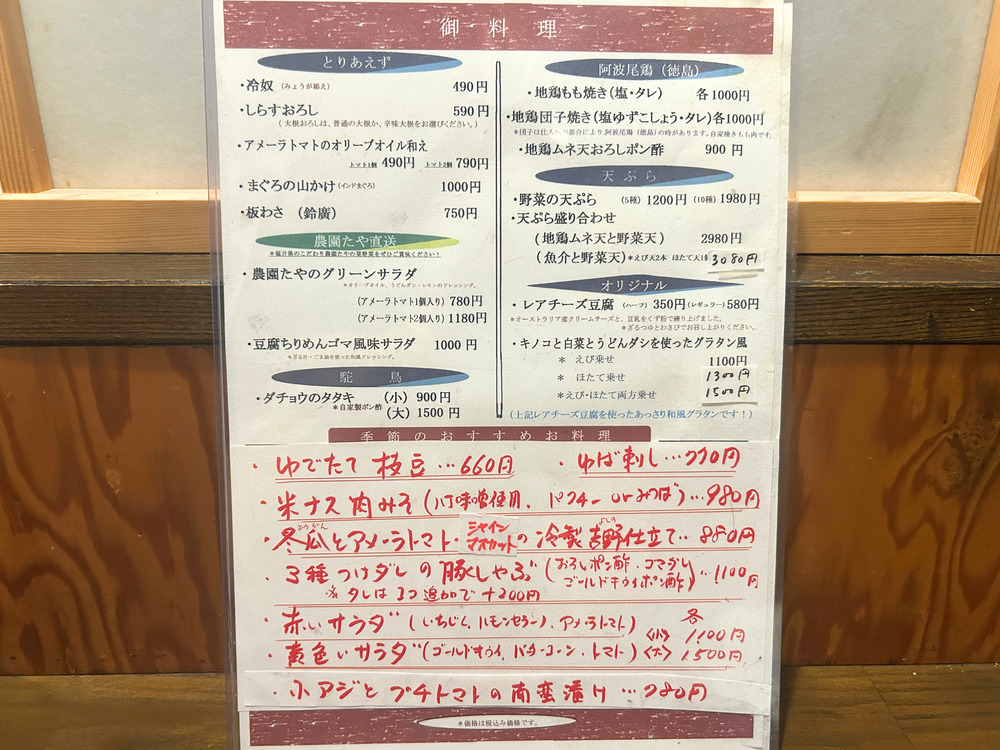 御料理
とりあえず
・冷奴（みょうが揃え） 490円
・しらすおろし 590円
（大根おろしは、普通の大根か、辛味大根をお選びください。）
・アメーラトマトのオリーブオイル和え
トマト1個 490円 トマト2個 790円
・まぐろの山かけ（インドまぐろ） 1000円
・板わさ（鈴廣） 750円
農園たや直送
＊福井県のこだわり農園たやの菜野菜をぜひご賞味ください！
・農園たやのグリーンサラダ
＊オリーブオイル、うどんダシ・レモンのドレッシング。
（アメーラトマト1個入り）780円
（アメーラトマト2個入り）1180円
・豆腐ちりめんゴマ風味サラダ 1000円
＊ざる汁・ごま油を使った和風ドレッシング。
駝鳥
・ダチョウのタタキ （小）900円
＊自家製ポン酢 （大）1500円
阿波尾鶏（徳島）
・地鶏もも焼き（塩・タレ） 各1000円
・地鶏団子焼き（塩ゆずこしょう・タレ）各1000円
＊団子は仕入れの都合により、阿波尾鶏（徳島）の時があります。自家挽きもも肉です。
・地鶏ムネ天おろしポン酢 900円
天ぷら
・野菜の天ぷら （5種）1200円（10種）1980円
・天ぷら盛り合わせ
（地鶏ムネ天と野菜天） 2980円
（魚介と野菜天）＊えび天2本 ほたて天1個 3080円
オリジナル
・レアチーズ豆腐（ハーフ）350円（レギュラー）580円
＊オーストラリア産クリームチーズと、豆乳をくず粉で練り上げました。
＊ざるつゆとわさびでお召し上がりください。
・キノコと白菜とうどんダシを使ったグラタン風
＊ えび乗せ 1100円
＊ ほたて乗せ 1300円
＊えび・ほたて両方乗せ 1500円
（上記レアチーズ豆腐を使ったあっさり和風グラタンです！）
季節のおすすめお料理
・ゆでたて枝豆…660円 ・ゆば刺し…770円
・米ナス肉みそ（八丁味噌使用、パクチー or みつば）…980円
・冬瓜とアメーラトマト・シャインマスカットの冷製吉野仕立て…880円
とうがん よしの
・3種つけダレの豚しゃぶ（おろしポン酢・ゴマダレ ゴールドキウイポン酢）…1100円
※タレは1コ追加で+200円
・赤いサラダ（いちじく、ハモンセラーノ、アメーラトマト） 各 〈小〉1100円
・黄色いサラダ（ゴールドキウイ、バターコーン、トマト）〈大〉1500円
・小アジとプチトマトの南蛮漬け…780円
＊価格は税込み価格です。